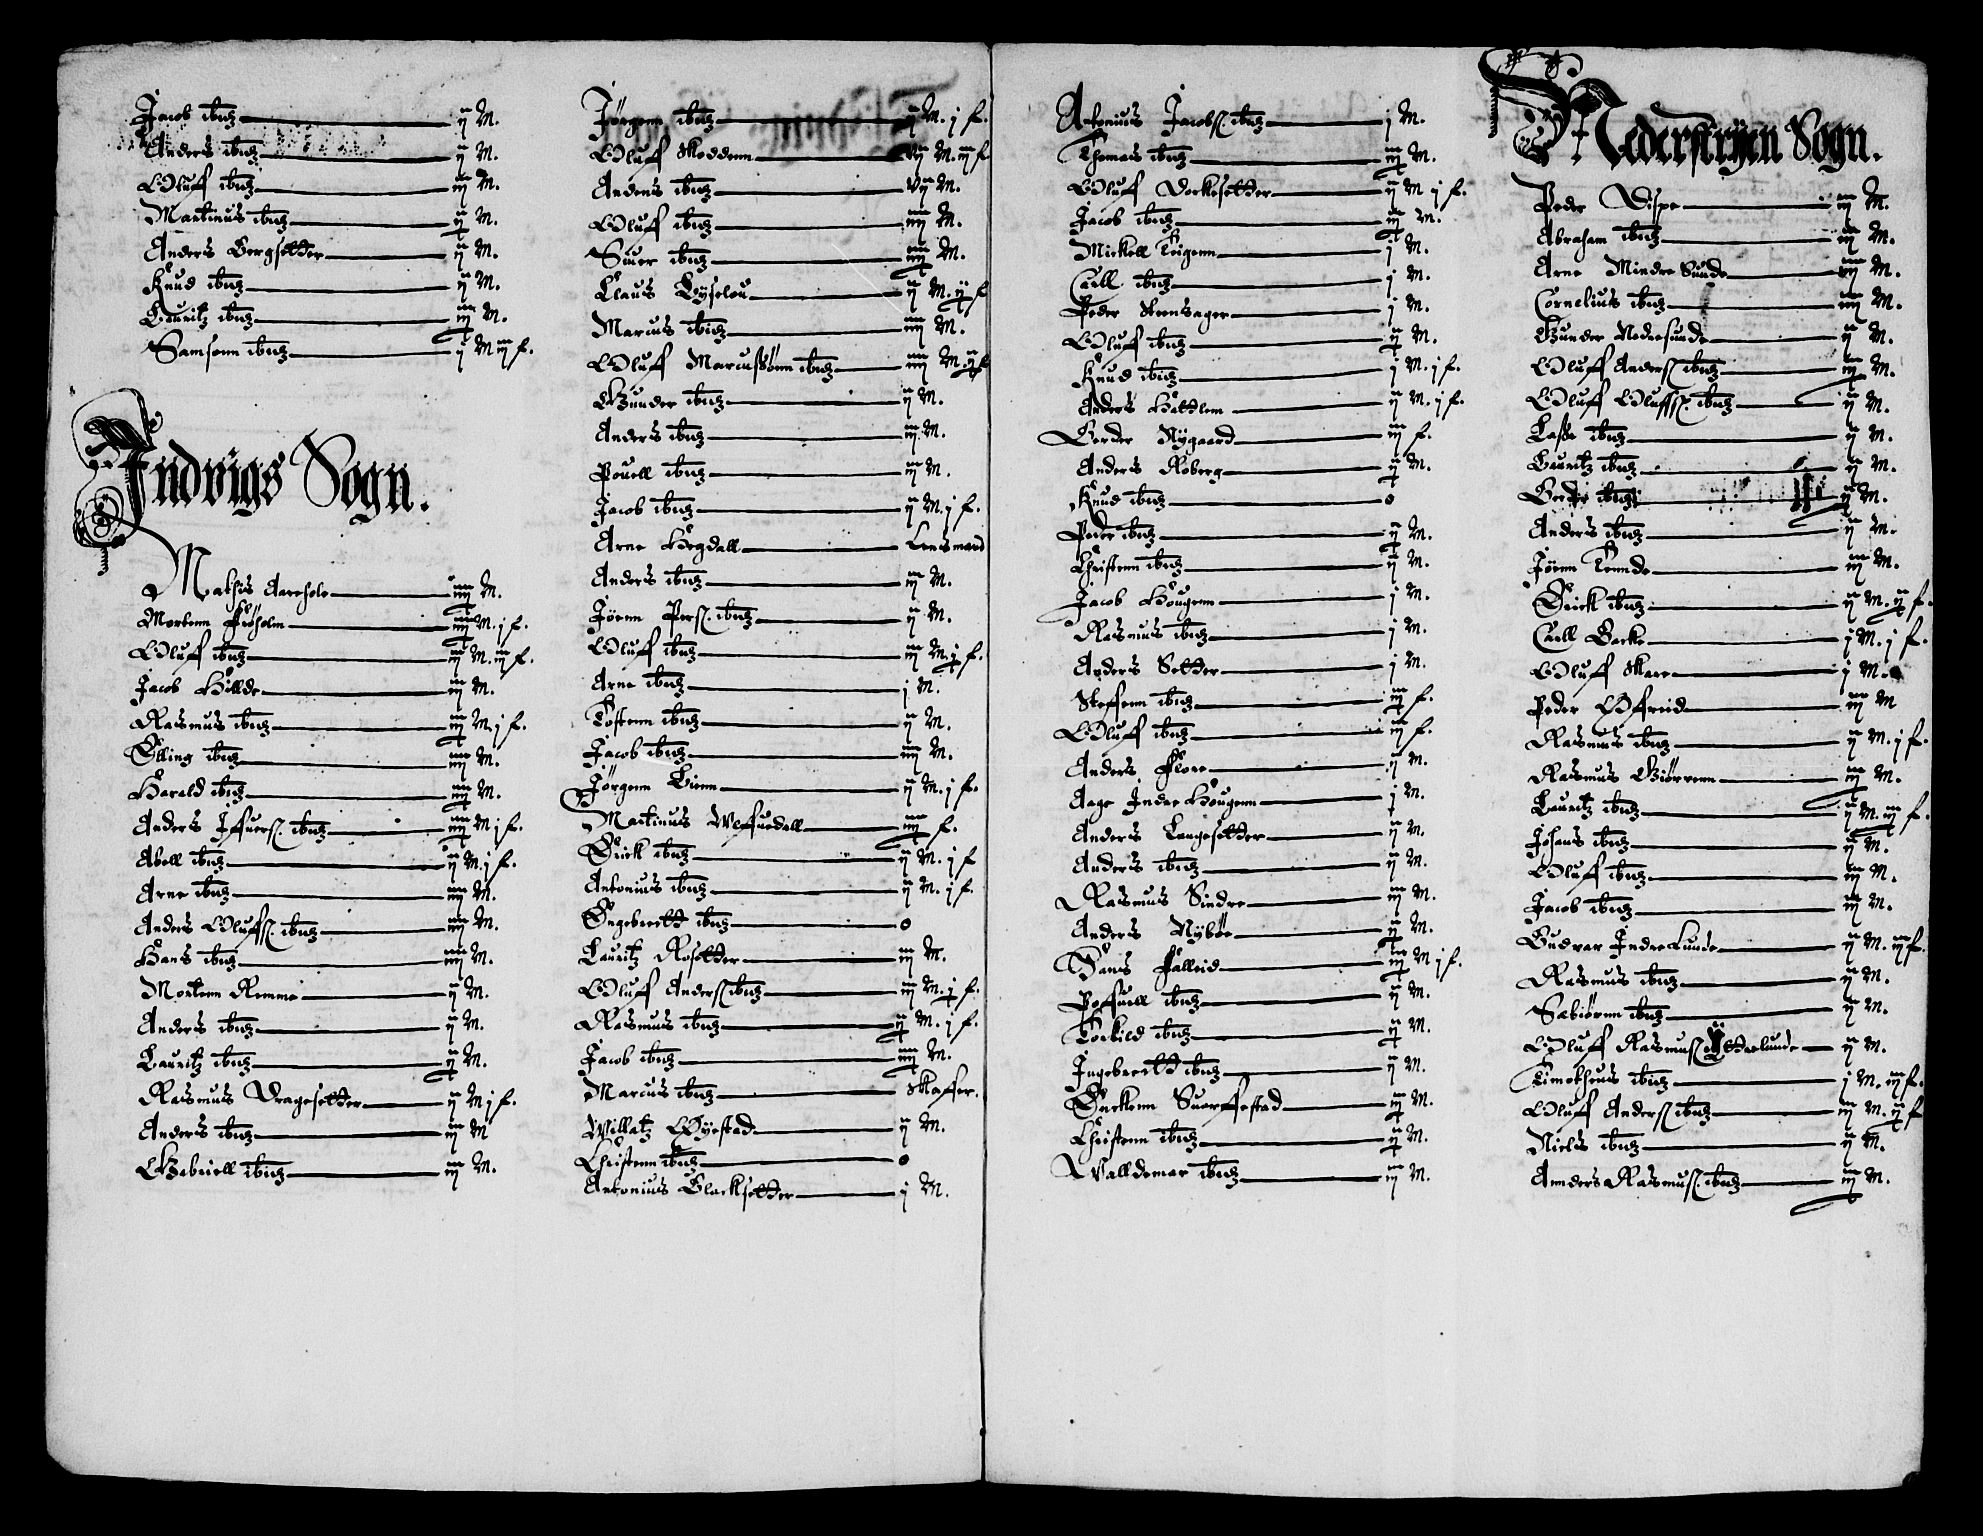 Jacob ibid ij M.
Anders ibid ij M.
Oluff ibid iij M.
Martinus ibid ij M.
Anders Bergsetter ij M.
Knud ibid ij M.
Lauritz ibid iij M.
Samsonn ibid j M iij f.
Indvigs Sogn.
Mathis Aarehole iiij M.
Mortenn Frøholm iiij M. j f.
Oluff ibid iij M. iij f.
Jacob Hillde iij M.
Rasmus ibid iij M. j f.
Elling ibid iiij M.
Harald ibid iiij M.
Anders Iffuers. ibid iiij M j f.
Abell ibid ij M. j f.
Arne ibid iiij M.
Anders Oluffs. ibid iiij M.
Hans ibid iiij M.
Mortenn Remme ij M.
Anders ibid ij M.
Lauritz ibid ij M.
Rasmus Dragesetter ij M j f.
Anders ibid iij M
Gabriell ibid iij M.
Jørgenn ibid ij M. j f.
Oluff Skoddenn vj M. iij f
Anders ibid vij M.
Oluff ibid iiij M.
Siuer ibid iiij M.
Claus ij M. ij f
Marcus ibid iiij M.
Oluff Marcussønn ibid iiij M. ij f
Gunder ibid ij M.
Anders ibid iij M.
Pouell ibid iij M.
Jacob ibid ij M. j f.
Arne Hegdall Lensmand
Anders ibid iij M.
Jøenn Pers. ibid ij M.
Oluff ibid iij M. j f.
Arne ibid j M.
Tostenn ibid ij M.
Jacob ibid iiij M.
Jørgenn ij M. j f.
Martinus iiij f.
Erick ibid ij M. j f
Antonius ibid ij M. j f.
Engebrett ibid 0
Lauritz Rosetter iij M.
Oluff Anders. ibid iij M. j f.
Rasmus ibid ij M. j f.
Jacob ibid iiij M.
Marcus ibid Skaffer.
Willatz Øyestad ij M.
Christenn ibid 0
Antonius Blacksetter j M.
Antonius Jacobs. ibid j M.
Thomas ibid iij M.
Oluff Dockesetter ij M j f.
Jacob ibid iij M.
Mickell Teigenn j M.
Carll ibid j M.
Peder Steensager j M.
Oluff ibid ij M.
Knud ibid j M. j f.
Anders Hattlem ij M. j f.
Gerder Nygaard iij f.
Anders Roberg ij M.
Knud ibid 0
Peder ibid ij M.
Christenn ibid ij M.
Jacob Hougenn j M.
Rasmus ibid j M.
Anders Setter j M.
Steffenn ibid iij f.
Oluff ibid iij f.
Anders Flore ij M.
Aage Indre Hougenn j M.
Anders Langesetter ij M.
Anders ibid ij M.
Rasmus Sindre iij M.
Anders Nybøe ij M.
Hans Falleid iij M j f.
Poffuell ibid ij M.
Torkild ibid ij M.
Ingebrett ibid ij M.
Erickenn Suorffestad iij M.
Christenn ibid ij M.
Walldemar ibid iij M.
Nederstryen Sogn.
Peder Dispe iij M.
Abraham ibid iij M.
Arne Mindre Sunde M.
Cornelius ibid iiij M.
Gunder Nedersunde ij M.
Oluff Anders. ibid iij M.
Oluff Oluffs. ibid ij M.
Lasse ibid ij M.
Lauritz ibid ij M.
ibid ij M.
Anders ibid ij M.
Jøenn Tennde iij M.
Erick ibid ij M. ij f.
Carll Backe j M. j f.
Oluff Skare j M.
Peder Offreid iij M
Rasmus ibid ij M. j f.
Rasmus Giørvenn iij M.
Lauritz ibid ij M. iij f.
Johans ibid ij M.
Oluff ibid iij M.
Jacob ibid iij M.
Gudvar Indre Lunde ij M. iij f.
Rasmus ibid ij M.
Sabiørnn ibid ij M.
Oluff Rasmus. Ytterlunde ij M.
Timotheus ibid j M. iij f.
Oluff Anders. ibid iij M. ij f
Niels ibid ij M.
Annders Rasmus. ibid iij M.